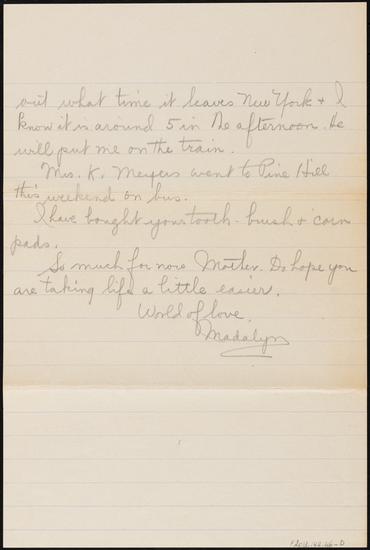 out what time it leaves New York + I
know it is around 5 in the afternoon. He
will put me on the train.
Mrs. K. Meyers went to Pine Hill
this weekend on bus.
I have bought your tooth-brush & corn
pads.
So much for now Mother. Do hope you
are taking life a little easier.
World of love.
Madalyn